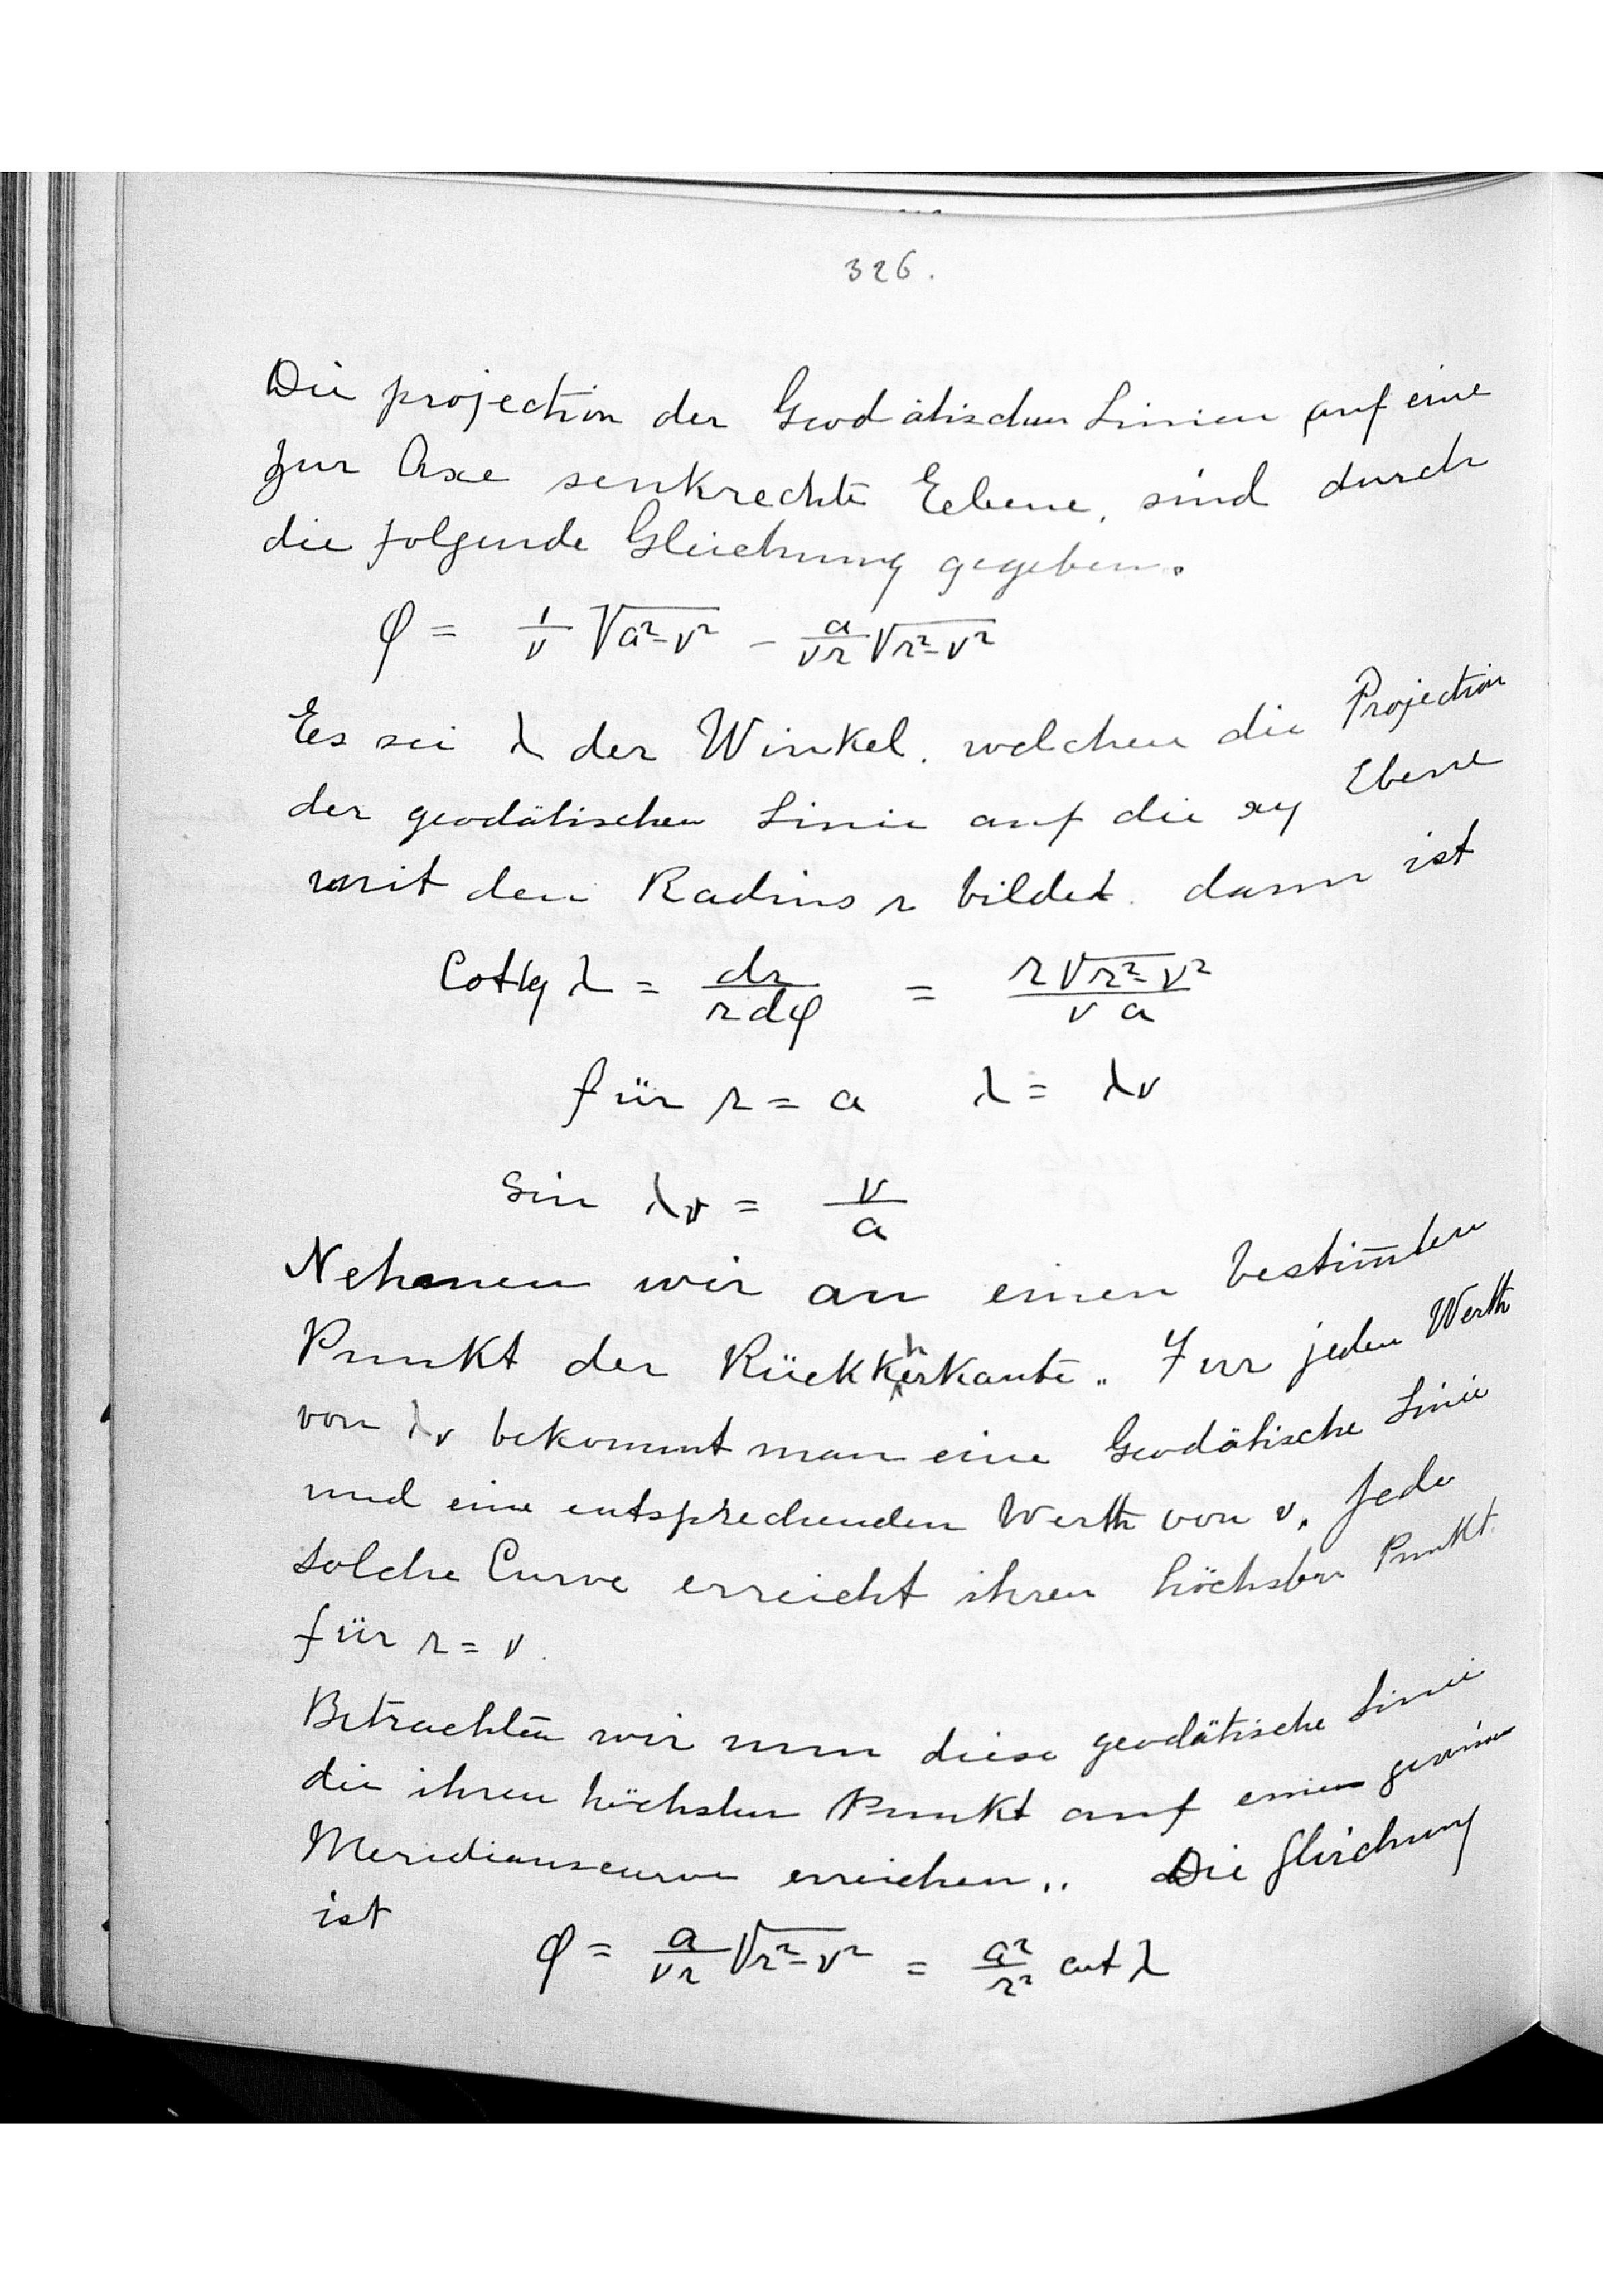 326.
Die projection der Geodätischen Linien auf eine
zur Axe senkrechte Eebene, sind durch
die folgende Gleichung gegeben.
φ = 1/v √(a²-v²) - a/(vr) √(r²-v²)
Ees sei λ der Winkel. welchen die Projection
der geodätischen Linie auf die xy Ebene
mit den Radius r bildet. dann ist
Cotg λ = dr/(r dφ) = r√(r²-v²)/(v a)
für r = a λ = λv
Sin λv = v/a
Nehmen wir an einen bestim̅ten
Punkt der Rückkehrkante. Fur jeden Werth
von λv bekommt man eine Geodätische Linie
und eine entsprechenden Werth von v. Jede
solche Curve erreicht ihren höchsten Punkt
für r = v.
Betrachten wir nun diese geodätische Linie
die ihren höchsten Punkt auf einen
Meridianscurve erreichen.. Die Gleichung
ist
φ = a/(vr) √(r²-v²) = a²/r² cot λ